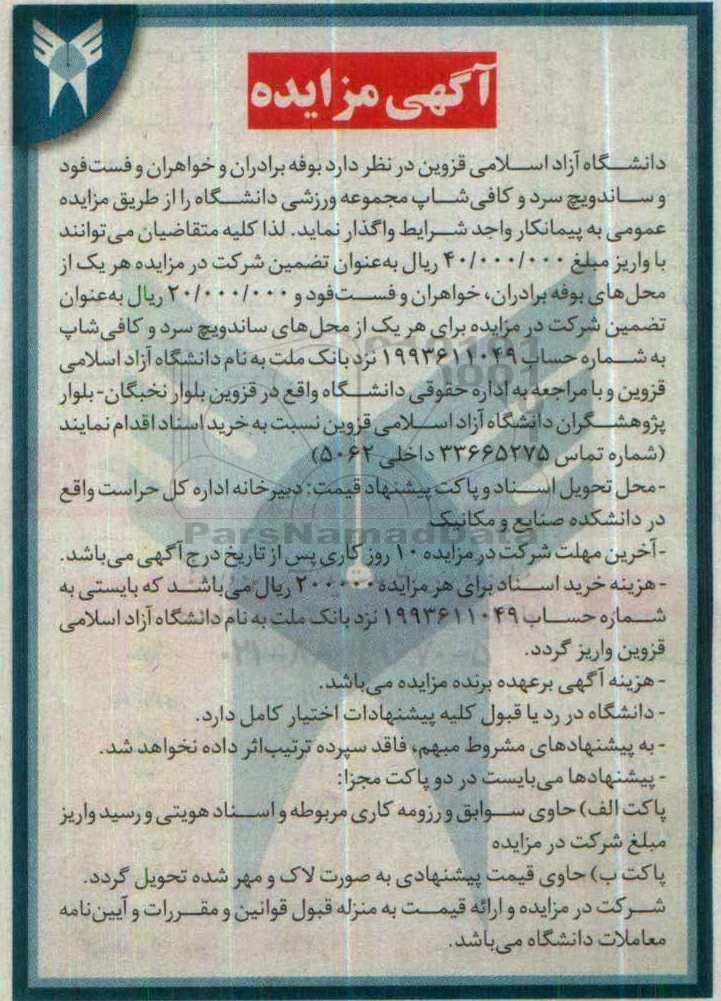 آگهی مزایده
دانشگاه آزاد اسلامی قزوین در نظر دارد بوفه برادران و خواهران و فست‌فود
و ساندویچ سرد و کافی‌شاپ مجموعه ورزشی دانشگاه را از طریق مزایده
عمومی به پیمانکار واجد شرایط واگذار نماید. لذا کلیه متقاضیان می‌توانند
با واریز مبلغ ۴۰/۰۰۰/۰۰۰ ریال به‌عنوان تضمین شرکت در مزایده هر یک از
محل‌های بوفه برادران، خواهران و فست‌فود و ۲۰/۰۰۰/۰۰۰ ریال به‌عنوان
تضمین شرکت در مزایده برای هر یک از محل‌های ساندویچ سرد و کافی‌شاپ
به شماره حساب ۱۹۹۳۶۱۱۰۴۹ نزد بانک ملت به نام دانشگاه آزاد اسلامی
قزوین و با مراجعه به اداره حقوقی دانشگاه واقع در قزوین بلوار نخبگان- بلوار
پژوهشگران دانشگاه آزاد اسلامی قزوین نسبت به خرید اسناد اقدام نمایند
(شماره تماس ۳۳۶۶۵۲۷۵ داخلی ۵۰۶۲)
-محل تحویل اسناد و پاکت پیشنهاد قیمت: دبیرخانه اداره کل حراست واقع
در دانشکده صنایع و مکانیک
ParsNamadData
-آخرین مهلت شرکت در مزایده ۱۰ روز کاری پس از تاریخ درج آگهی می‌باشد.
-هزینه خرید اسناد برای هر مزایده ۲۰۰۰۰۰۰ ریال می‌باشد که بایستی به
شماره حساب ۱۹۹۳۶۱۱۰۴۹ نزد بانک ملت به نام دانشگاه آزاد اسلامی
قزوین واریز گردد.
-هزینه آگهی برعهده برنده مزایده می‌باشد.
- دانشگاه در رد یا قبول کلیه پیشنهادات اختیار کامل دارد.
- به پیشنهادهای مشروط مبهم، فاقد سپرده ترتیب‌اثر داده نخواهد شد.
- پیشنهادها می‌بایست در دو پاکت مجزا:
پاکت الف) حاوی سوابق و رزومه کاری مربوطه و اسناد هویتی و رسید واریز
مبلغ شرکت در مزایده
پاکت ب) حاوی قیمت پیشنهادی به صورت لاک و مهر شده تحویل گردد.
شرکت در مزایده و ارائه قیمت به منزله قبول قوانین و مقررات و آیین‌نامه
معاملات دانشگاه می‌باشد.